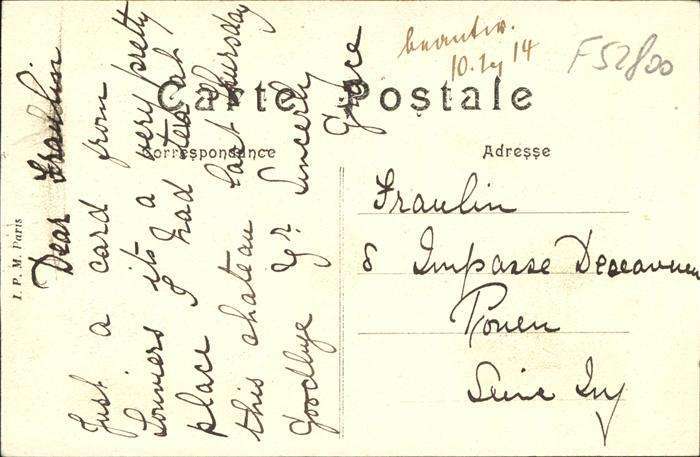 Carte Postale
Correspondance
Adresse
I. P. M. Paris
beantw.
10. 14
F 52800
Dear Fraulin
Just a card from
Louviers its a very pretty
place I had tea at
this chateau last Thursday
Goodbye Yr. Sincerly
Grace
Fraulin
8 Impasse
Rouen
Seine Inf